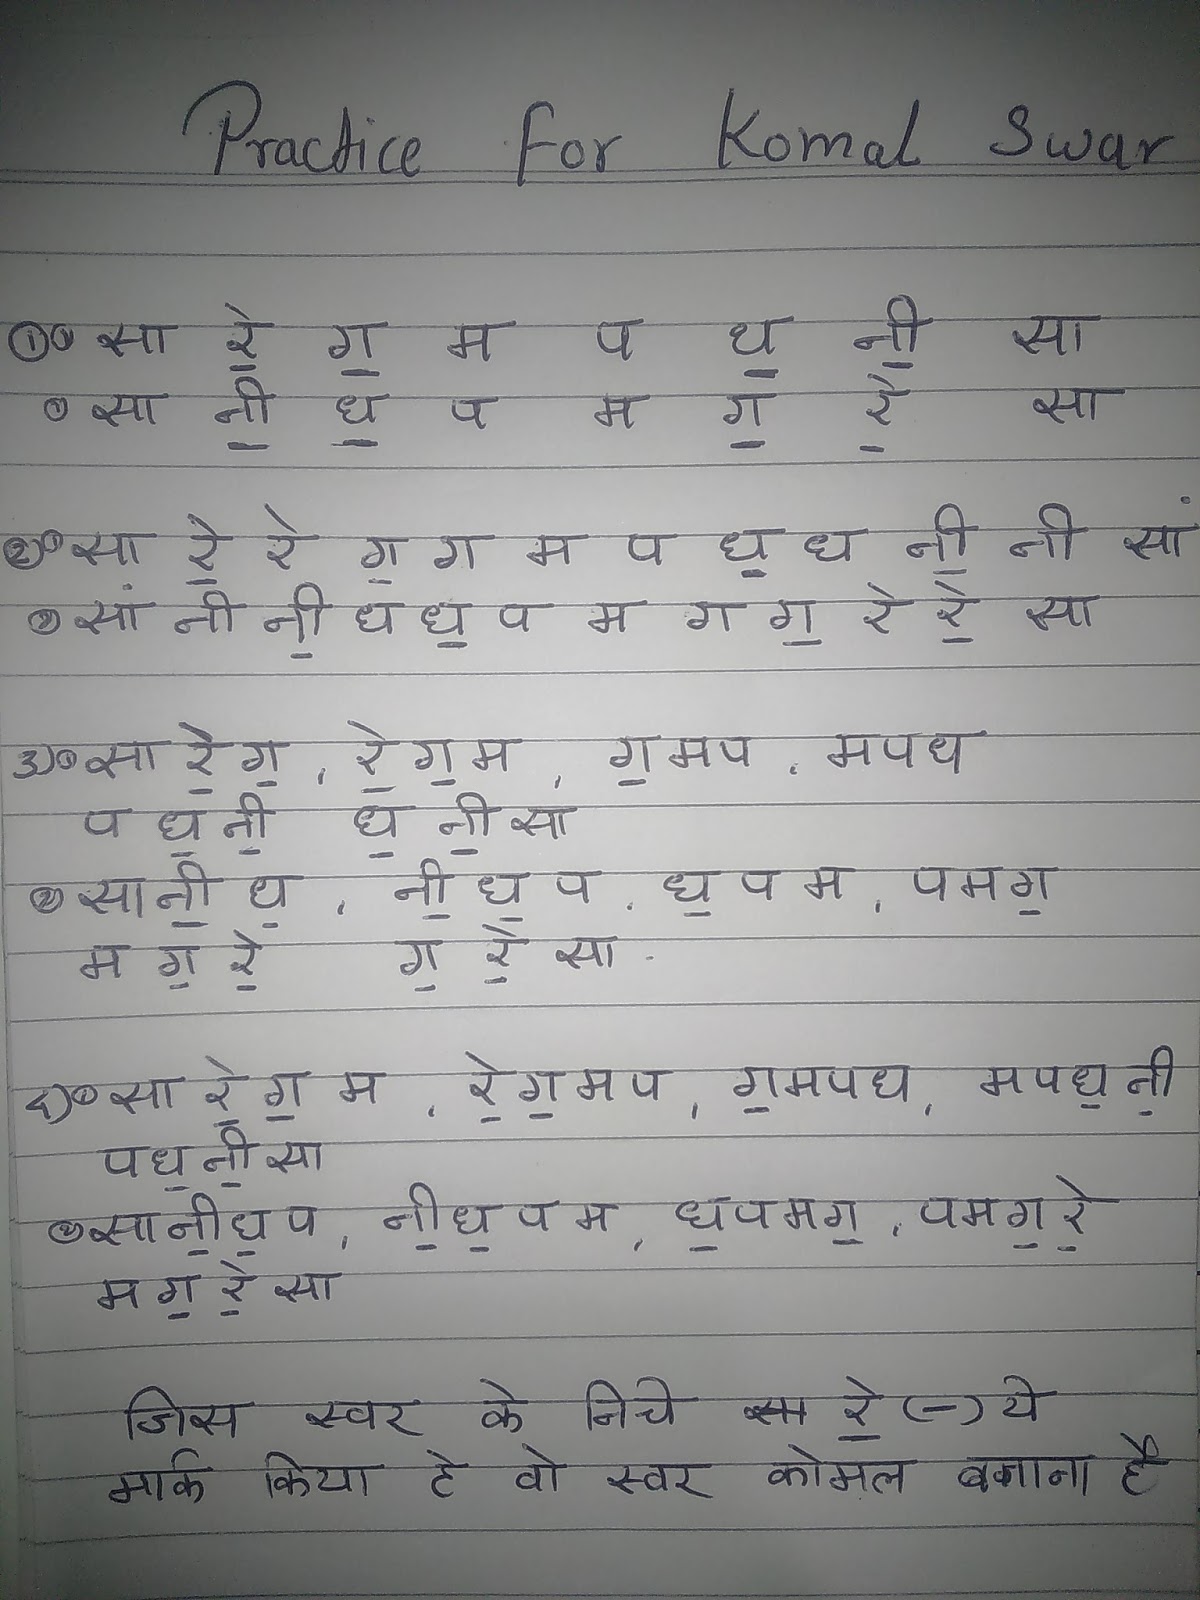 Practice For Komal Swar
①① सा रे॒ ग॒ म प ध॒ नी॒ सा
② सा नी॒ ध॒ प म ग॒ रे॒ सा
२)① सा रे॒ रे ग॒ ग म प ध॒ ध नी॒ नी सां
② सां नी नी॒ ध ध॒ प म ग ग॒ रे रे॒ सा
३)① सा रे॒ ग॒ , रे॒ ग॒ म , ग॒ म प , म प ध
प ध॒ नी॒ ध॒ नी॒ सा
② सा नी॒ ध॒ , नी॒ ध॒ प , ध॒ प म , प म ग॒
म ग॒ रे॒ ग॒ रे॒ सा .
४)① सा रे॒ ग॒ म , रे॒ ग॒ म प , ग॒ म प ध , म प ध॒ नी॒
प ध॒ नी॒ सा
② सा नी॒ ध॒ प , नी॒ ध॒ प म , ध॒ प म ग॒ , प म ग॒ रे॒
म ग॒ रे॒ सा
जिस स्वर के निचे रे॒ (–) ये
मार्क किया हे वो स्वर कोमल बजाना है